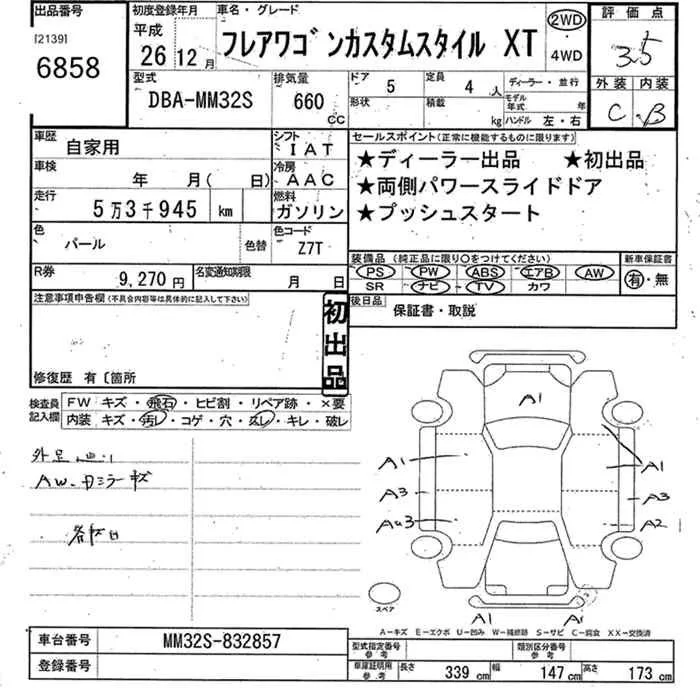 出品番号 初度登録年月 車名・グレード 評価点
[2139] 6858 平成 26 12月 フレアワゴンカスタムスタイル XT 2WD 4WD 3.5
外装 内装
C B
型式 排気量 ドア 5 定員 4 人 ディーラー・並行
DBA-MM32S 660 CC 形状 積載 kg モデル年式 年
ハンドル 左・右
車歴 自家用 シフト IAT セールスポイント(正常に機能するものに限ります)
車検 年 月( 日) 冷房 AAC ★ディーラー出品 ★初出品
走行 5万3千945 km 燃料 ガソリン ★両側パワースライドドア
★プッシュスタート
色 パール 色替 色コード Z7T
装備品(純正品に限り○をつけてください) 新車保証書
PS PW ABS エアB AW 有・無
SR ナビ TV カワ
R券 9,270円 名変通知期限 月 日
後日品 保証書・取説
注意事項申告欄(不具合内容等は具体的に記入して下さい)
初出品
修復歴 有〔箇所
検査員記入欄 FW キズ・飛石・ヒビ割・リペア跡・×要
内装 キズ・汚レ・コゲ・穴・ムレ・キレ・破レ
AW.
A1
A1 A1
A3 A3
A2
A1 A1
スペア
A－キズ E－エクボ U－凹み W－補修跡 S－サビ C－腐食 XX－交換済
車台番号 MM32S-832857
登録番号
型式指定番号 参考 類別区分番号 参考
車庫証明用 参考 長さ 339 cm 幅 147 cm 高さ 173 cm